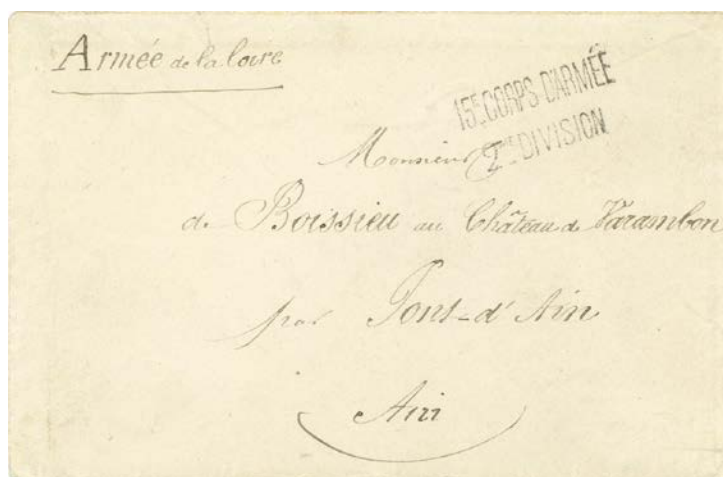 Armée de la loire
15E CORPS-D'ARMÉE
2ME DIVISION
Monsieur
de Boissieu au Château de Varambon
par Pont-d'Ain
Ain